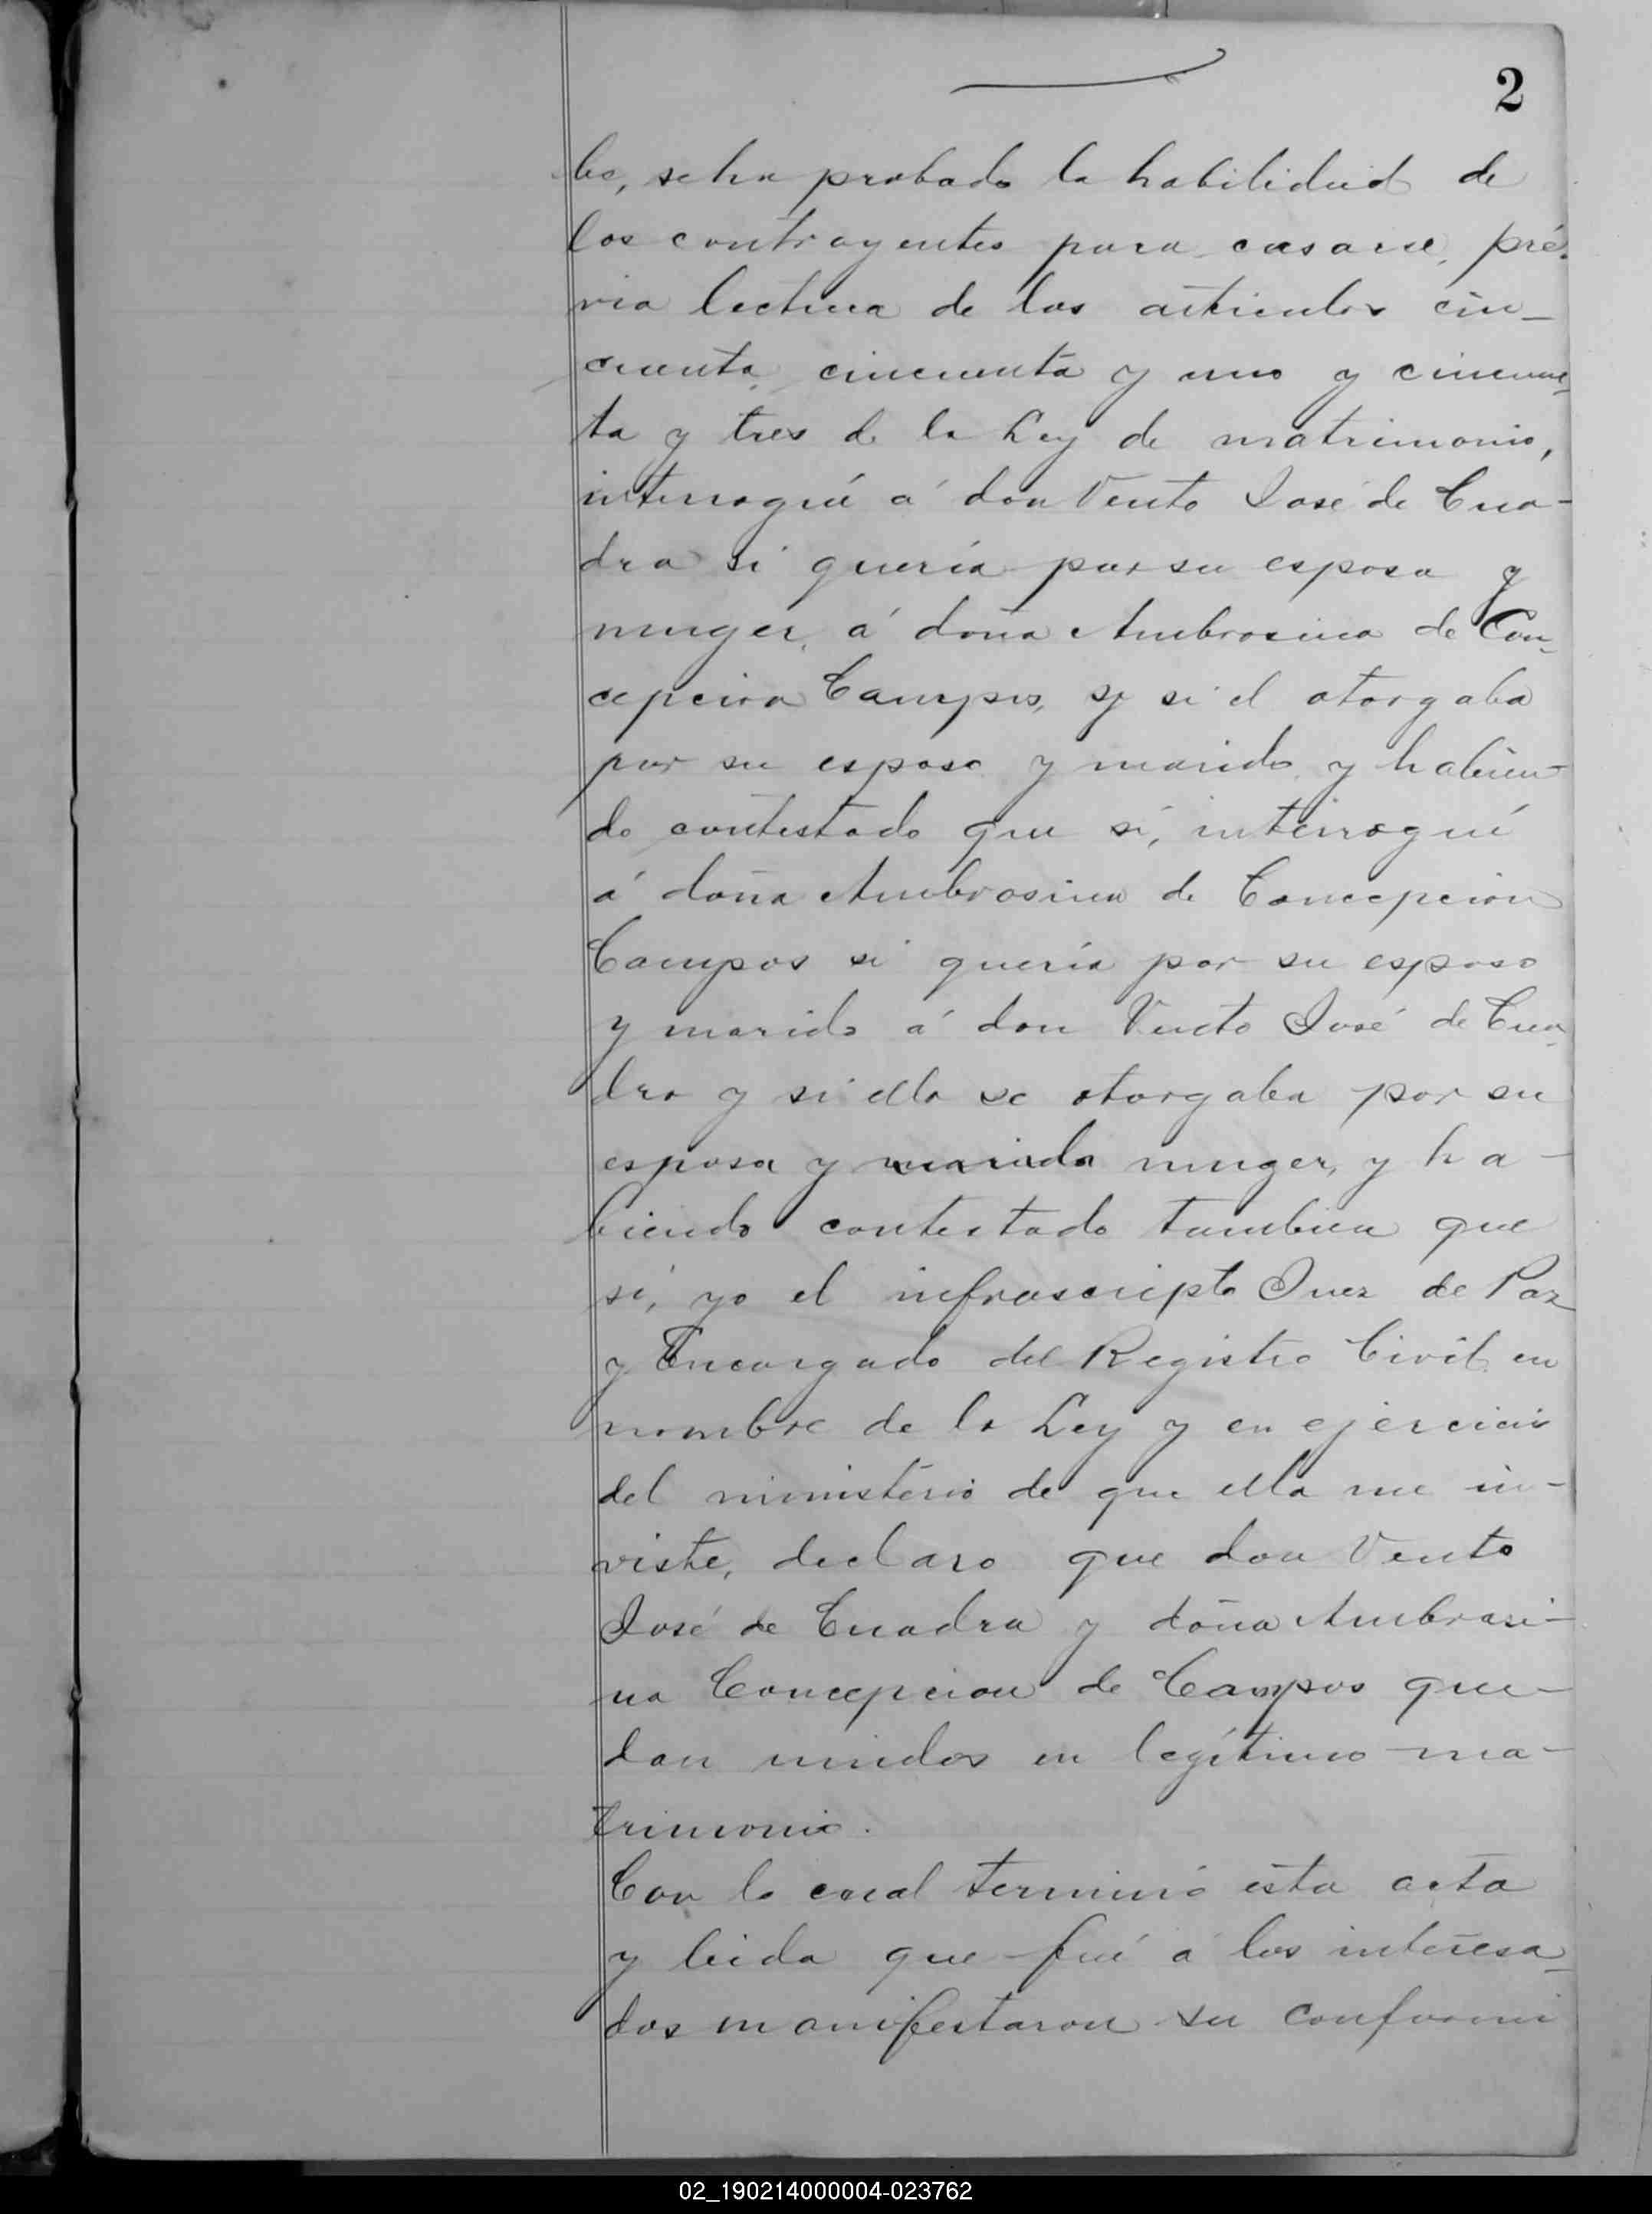 2
bo, se ha probado la habilidad de
los contrayentes para casarse, pré-
via lectura de los artículos cin-
cuenta, cincuenta y uno y cincuen-
ta y tres de la Ley de matrimonio,
interrogué á don Vento José de Cua-
dra si quería por su esposa y
muger, á doña Ambrosina de Con-
cepcion Campos, y si él otorgaba
por su esposo y marido y habien-
do contestado que sí, interrogué
á doña Ambrosina de Concepcion
Campos si quería por su esposo
y marido á don Vento José de Cua-
dra y si ella se otorgaba por su
esposa y marida muger, y ha-
biendo contestado tambien que
sí, yo el infrascripto Juez de Paz
y Encargado del Registro Civil en
nombre de la Ley y en ejercicio
del ministerio de que ella me in-
viste, declaro que don Vento
José de Cuadra y doña Ambrosi-
na Concepcion de Campos que-
dan unidos en legítimo ma-
trimonio.
Con lo cual terminó esta acta
y leida que fué á los interesa-
dos manifestaron su conformi
02_190214000004-023762